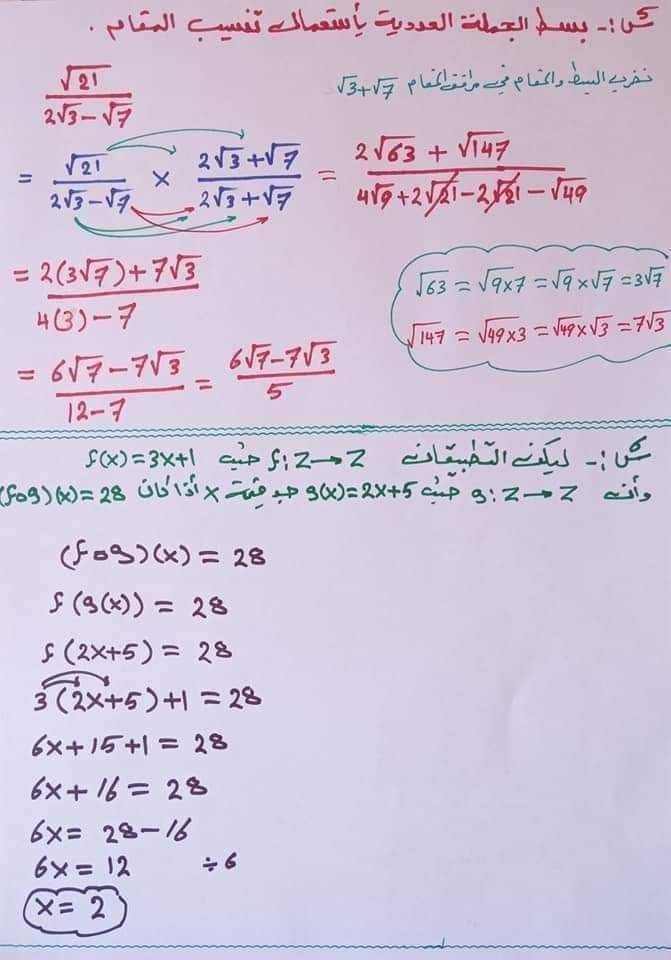 س١:- بسط الجملة العددية بأستعمال تنسيب المقام .
نضرب البسط والمقام في مرافق المقام √3+√7
√21 / 2√3-√7
= √21 / 2√3-√7 × 2√3+√7 / 2√3+√7 = 2√63 + √147 / 4√9+2√21-2√21-√49
= 2(3√7)+7√3 / 4(3)-7
√63 = √9×7 = √9×√7 = 3√7
√147 = √49×3 = √49×√3 = 7√3
= 6√7-7√3 / 12-7 = 6√7-7√3 / 5
س١:- ليكن التطبيقان f:Z→Z حيث f(x)=3x+1
وأن g:Z→Z حيث g(x)=2x+5 جد قيمة x أذا كان (fog)(x)=28
(fog)(x) = 28
f(g(x)) = 28
f(2x+5) = 28
3(2x+5)+1 = 28
6x+15+1 = 28
6x+16 = 28
6x = 28-16
6x = 12 ÷6
x = 2